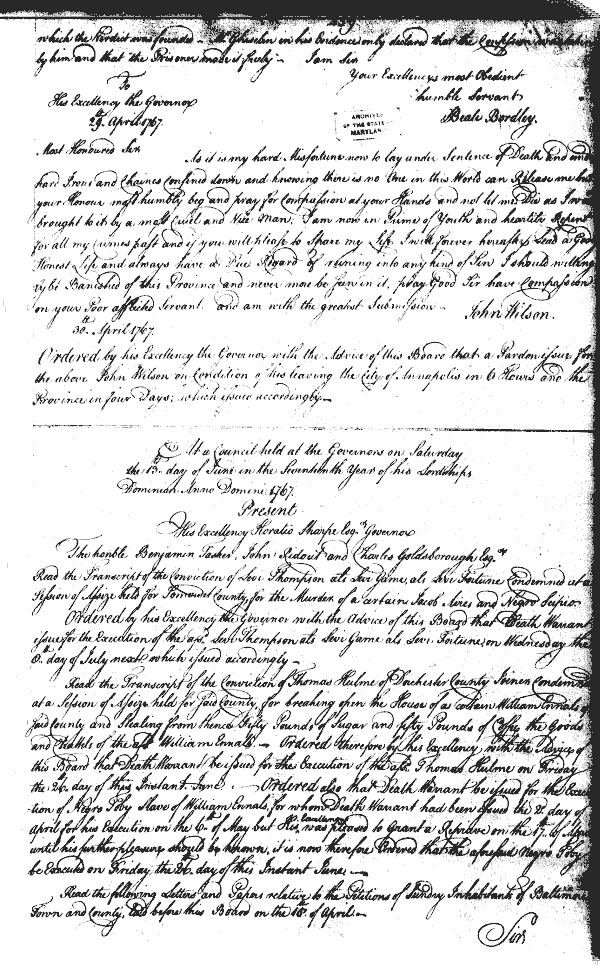 which the Verdict was founded Mr Ghiselin in his Evidence only declared that the Confession was taken
by him and that the Prisoner made it freely — I am Sir
Your Excellencys most Obedient
To humble Servant
His Excellency the Governor Beale Bordley.
29th April 1767.
ARCHIVES
OF THE STATE
MARYLAND
Most Honoured Sir
As it is my hard Misfortune now to lay under Sentence of Death and
hard Irons and Chaines confined down and knowing there is no One in this World can Release me but
your Honour most humbly beg and pray for Compassion at your Hands and not let me Die as I was
brought to it by a most Cruel and Vice Man, I am now in Prime of Youth and heartily Repent
for all my Crimes past and if you will please to Spare my Life I will forever hereafter Lead a Good
Honest Life and always have a Due Regard of runing into any kind of Sin I should willing
ly be Banished of this Province and never more be seen in it, pray Good Sir have Compassion
on your Poor afflicted Servant and am with the greatest Submission — John Wilson.
30th April 1767.
Ordered by his Excellency the Governor with the Advice of this Board that a Pardon issue for
the above John Wilson on Condition of his leaving the City of Annapolis in 6 Hours and the
Province in four Days; which issued accordingly —
At a Council held at the Governors on Saturday
the 13th day of June in the Seventeenth Year of his Lordships
Dominion Anno Domini 1767.
Present
His Excellency Horatio Sharpe Esqr Governor
The honble Benjamin Tasker, John Ridout and Charles Goldsborough Esqrs
Read the Transcript of the Conviction of Levi Thompson als Levi Game, als Levi Fortune Condemned at a
Session of Assize held for Somerset County, for the Murder of a certain Jacob Aires and Negro Scipio.
Ordered by his Excellency the Governor with the Advice of this Board that Death Warrant
issue for the Execution of the afsd Levi Thompson als Levi Game als Levi Fortune, on Wednesday the
8th day of July next which issued accordingly —
Read the Transcript of the Conviction of Thomas Hulme of Dorchester County Joiner Condemned
at a Session of Assize held for said County, for breaking open the House of a certain William Ennals of
said County and Stealing from thence Fifty Pounds of Sugar and fifty Pounds of Coffee the Goods
and Chattels of the afsd William Ennals — Ordered therefore by his Excellency with the Advice of
this Board that Death Warrant be issued for the Execution of the afsd Thomas Hulme on Friday
the 26th day of this Instant June — Ordered also that Death Warrant be issued for the Execu
tion of Negro Toby Slave of William Ennals, for whom Death Warrant had been issued the 2d day of
April for his Execution on the 6th of May but His Excellency was pleased to Grant a Reprieve on the 17th of April
until his further pleasure should be known, it is now therefore Ordered that the aforesaid Negro Toby
be Executed on Friday the 26th day of this Instant June —
Read the following Letters and Papers relative to the Petitions of Sundry Inhabitants of Baltimore
Town and County, laid before this Board on the 18th of April —
Sir